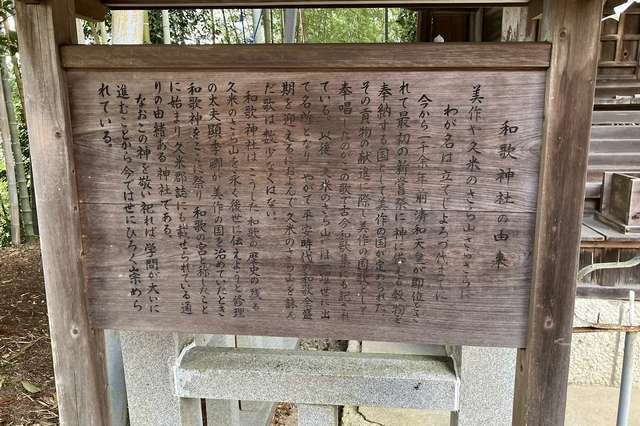 和歌神社の由来
美作や久米のさら山さらさらに
わが名は立てじよろづ代までに
今から一千余年前清和天皇が即位とさ
れて最初の新嘗祭に神に供える穀物を
奉納する国として美作の国が定められた
その貢物の献進に際し美作の国歌として
奉唱したのがこの歌で古今和歌集にも記され
ている。以後、久米のさら山が一躍世に出
て名所となり、やがて平安時代の和歌全盛
期を迎えるにおよんで久米のさら山を詠ん
だ歌は数少なくはない。
和歌神社は、こうした和歌の歴史の残る
久米のさら山を永く後世に伝えようと修理
の太夫顕季卿が美作の国を治めていたとき
和歌神をここに祭り和歌の宮と称したこと
に始まり久米郡誌にも載せられている通
りの由緒ある神社である。
なおこの神を敬い祀れば学問が大いに
進むことから今では世にひろく崇めら
れている。